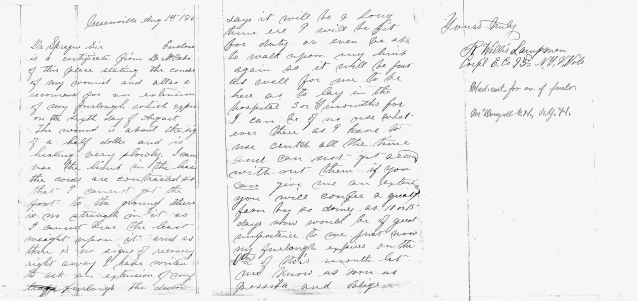 Greenville Aug 1st 186
Dr Sprague Sir Enclosed
is a certificate from Dr McCabe
of this place stating the course
of my wound and allso a
recommend for an extension
of my furlough which expires
on the Sixth day of August
The wound is about the size
of a half dollar and is
healing very slowly. I can
use the limb in the least
the cords are contracted so
that I cannot get the
foot to the ground there
is no strength in it as
I cannot bear the least
weight upon it and as
there is no signs of recovery
right away I have written
to ask an extension of my
furlough the doctor
says it will be a long
time ere I will be fit
for duty or even be able
to walk upon my limb
again so it will be just
as well for me to be
here as to lay in the
hospital 3 or 4 months for
I can be of no use what
ever there as I have to
use crutch all the time
and can not get around
with out them if you
can give me an extention
you will confer a great
favor by so doing as 10 or 15
days now would be of great
importance to me just now
my furlough expires on the
6th of this month let
me know as soon as
possible and oblige
Yours Truly
R Willis Lampman
Corpl Co. E N.Y. Vols
Med. cert. for ex of furlo.
McDougall N.Y.H.